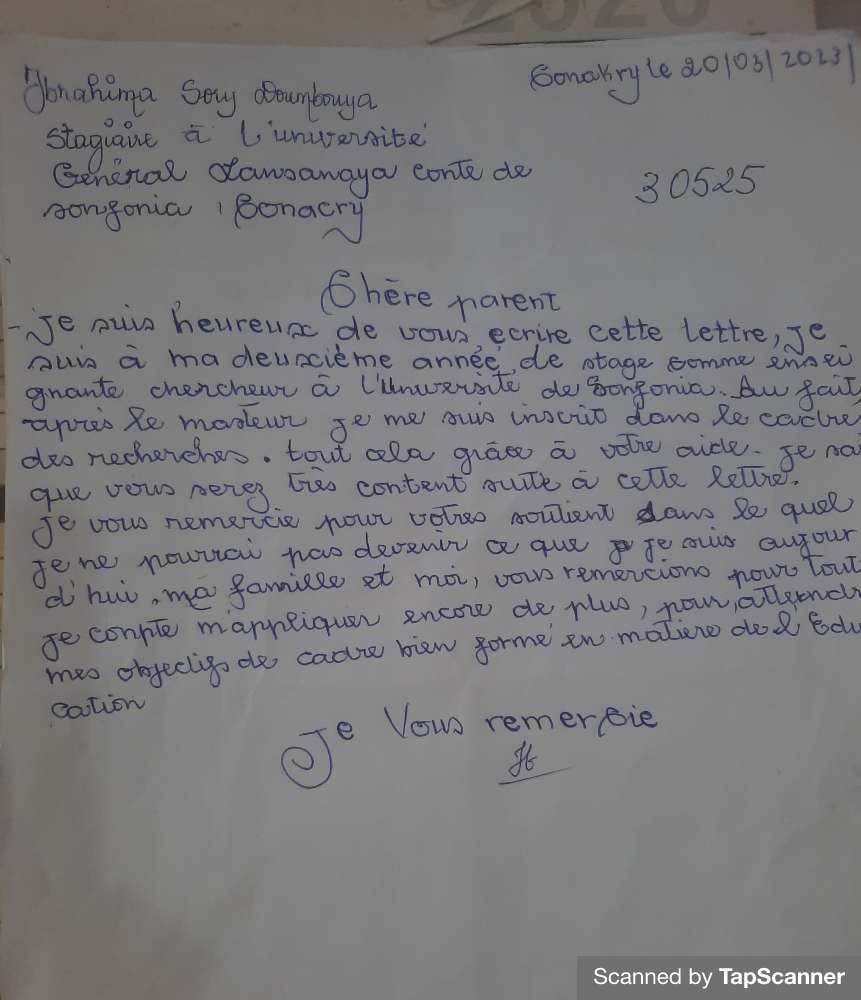 2020
Ibrahima Sory Doumbouya
Conakry le 20/03/2023/
Stagiaire à L'université
Général Lansanaya conte de
30525
sonfonia, Conacry
Chère parent
- Je suis heureux de vous écrire cette lettre, Je
suis à ma deuxième année de stage comme ensei
gnante chercheur à l'Université de Sonfonia. Au fait,
après le masteur je me suis inscrit dans le cadre
des recherches. tout cela grâce à votre aide. je sai
que vous serez très content suite à cette lettre.
Je vous remercie pour votres soutient dans le quel
je ne pourrai pas devenir ce que je suis aujour
d'hui. ma famille et moi, vous remercions pour tout
je conpte m'appliquer encore de plus, pour, atteindr
mes objectifs de cadre bien formé en matière de l'Edu
cation
Je Vous remercie